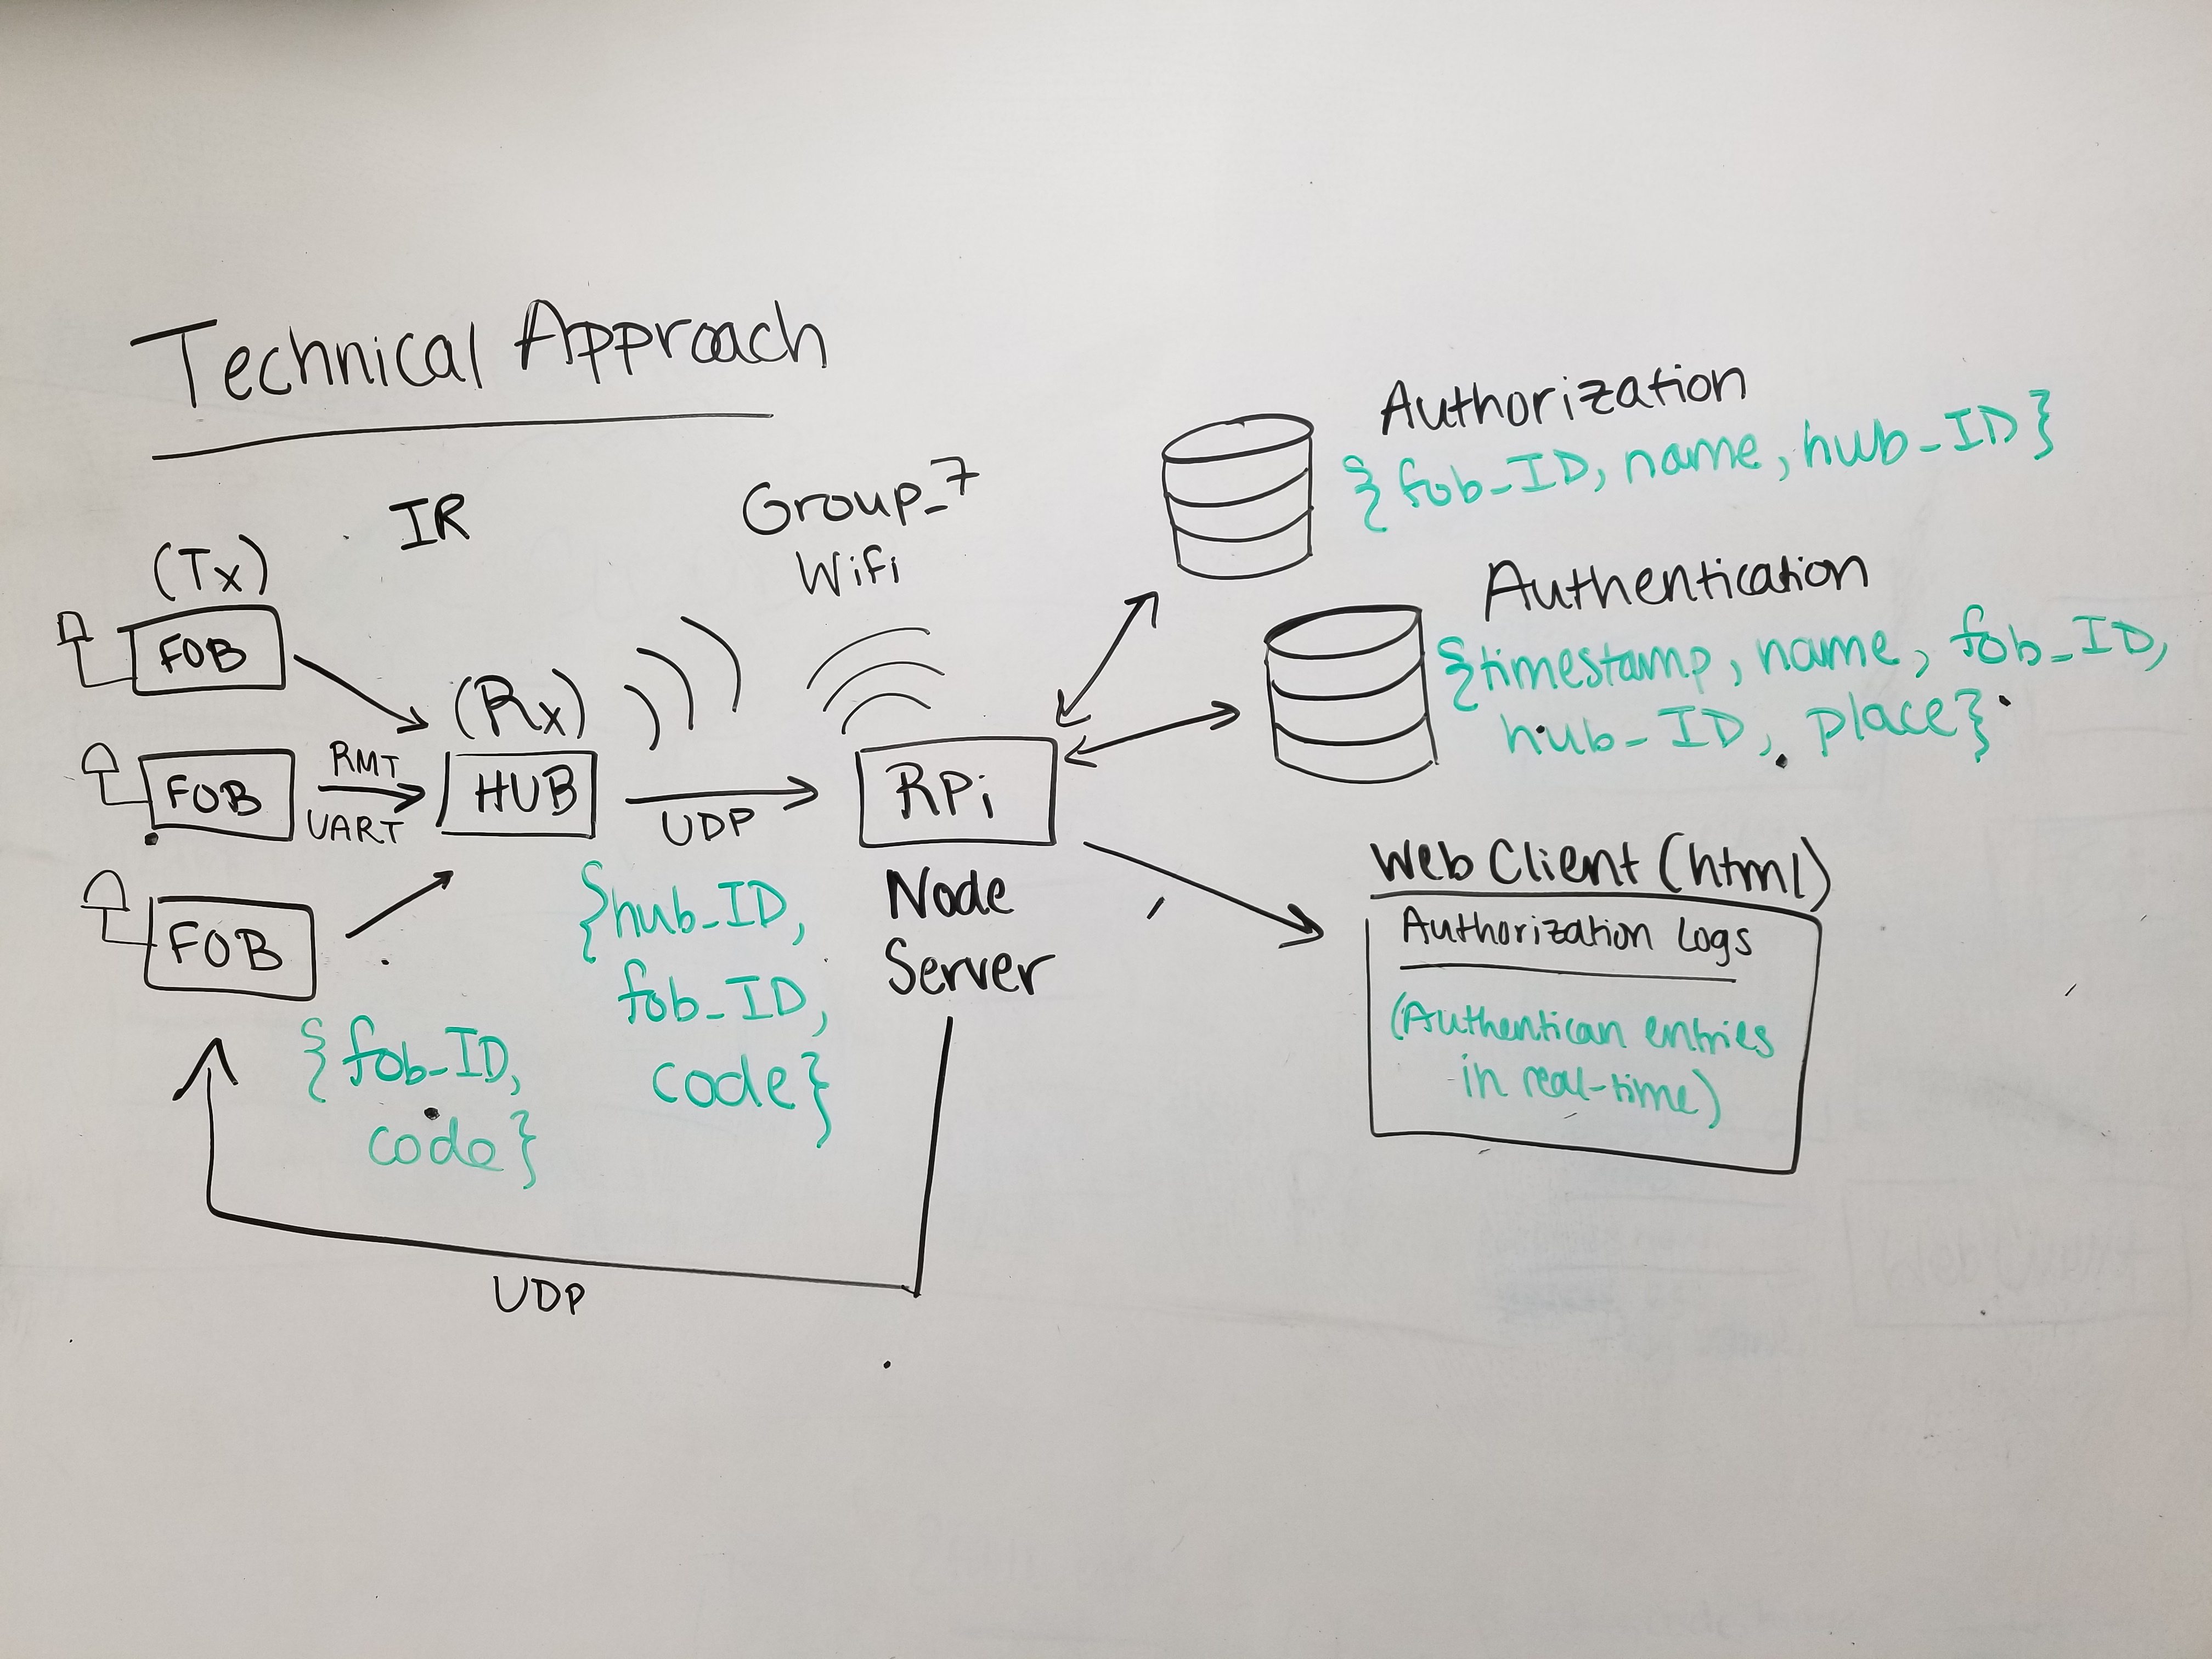 Technical Approach
IR
Group_7
Wifi
(Tx)
FOB
FOB
FOB
RMT
UART
{fob_ID,
code}
(Rx)
HUB
UDP
{hub_ID,
fob_ID,
code}
RPi
Node
Server
UDP
Authorization
{fob_ID, name, hub_ID}
Authentication
{timestamp, name, fob_ID,
hub_ID, place}
Web Client (html)
Authorization Logs
(Authentican entries
in real-time)